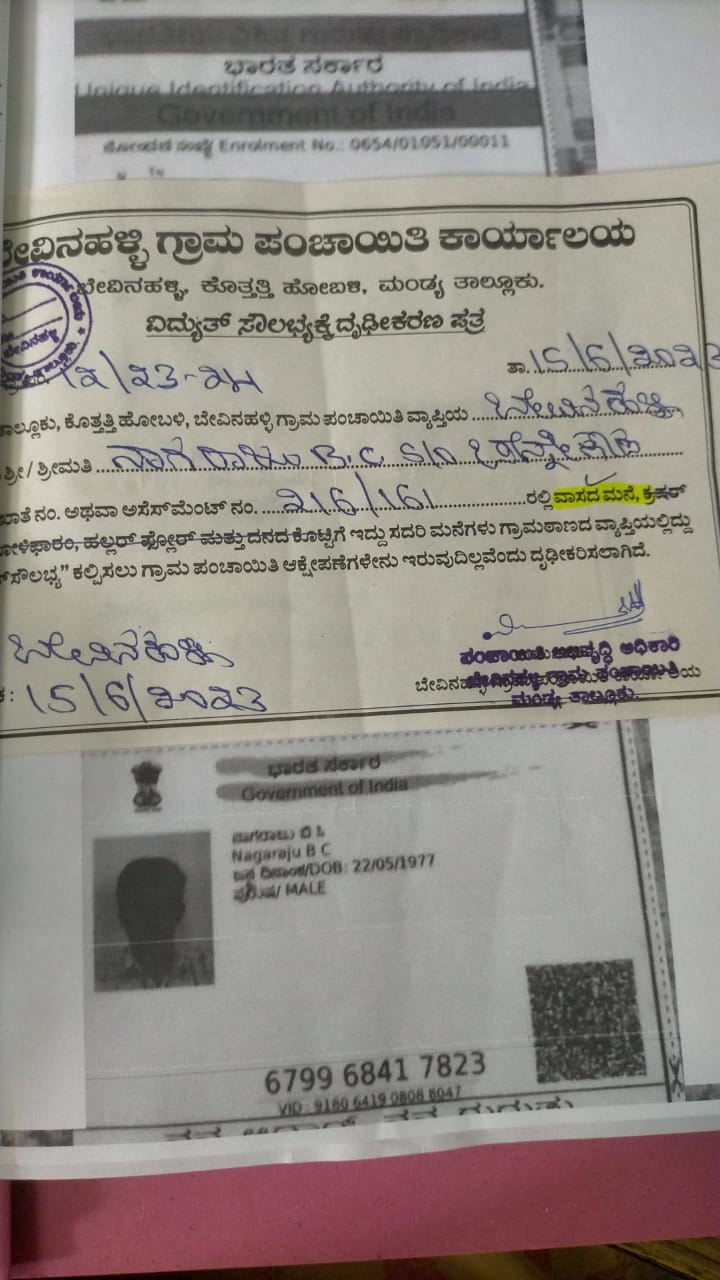 ಭಾರತ ಸರ್ಕಾರ
Unique Identification Authority of India
Government of India
Enrolment No.: 0654/01051/00011
To
ಬೇವಿನಹಳ್ಳಿ ಗ್ರಾಮ ಪಂಚಾಯಿತಿ ಕಾರ್ಯಾಲಯ
ಬೇವಿನಹಳ್ಳಿ, ಕೊತ್ತತ್ತಿ ಹೋಬಳಿ, ಮಂಡ್ಯ ತಾಲ್ಲೂಕು.
ವಿದ್ಯುತ್ ಸೌಲಭ್ಯಕ್ಕೆ ದೃಢೀಕರಣ ಪತ್ರ
12/23-24 ತಾ. 15/6/2023
ತಾಲ್ಲೂಕು, ಕೊತ್ತತ್ತಿ ಹೋಬಳಿ, ಬೇವಿನಹಳ್ಳಿ ಗ್ರಾಮ ಪಂಚಾಯಿತಿ ವ್ಯಾಪ್ತಿಯ ಬೇವಿನಹಳ್ಳಿ
ಶ್ರೀ / ಶ್ರೀಮತಿ ನಾಗರಾಜು B.C S/o
ಖಾತೆ ನಂ. ಅಥವಾ ಅಸೆಸ್‌ಮೆಂಟ್ ನಂ. 216/161 ರಲ್ಲಿ ವಾಸದ ಮನೆ, ಕ್ರಷರ್
ಕೋಳಿಫಾರಂ, ಹಲ್ಲರ್ ಫ್ಲೋರ್ ಮತ್ತು ದನದ ಕೊಟ್ಟಿಗೆ ಇದ್ದು ಸದರಿ ಮನೆಗಳು ಗ್ರಾಮಠಾಣದ ವ್ಯಾಪ್ತಿಯಲ್ಲಿದ್ದು
ಸೌಲಭ್ಯ" ಕಲ್ಪಿಸಲು ಗ್ರಾಮ ಪಂಚಾಯಿತಿ ಆಕ್ಷೇಪಣೆಗಳೇನು ಇರುವುದಿಲ್ಲವೆಂದು ದೃಢೀಕರಿಸಲಾಗಿದೆ.
ಬೇವಿನಹಳ್ಳಿ
15/6/2023
ಪಂಚಾಯಿತಿ ಅಭಿವೃದ್ಧಿ ಅಧಿಕಾರಿ
ಬೇವಿನಹಳ್ಳಿ ಗ್ರಾಮ ಪಂಚಾಯಿತಿ
ಮಂಡ್ಯ ತಾಲ್ಲೂಕು.
ಭಾರತ ಸರ್ಕಾರ
Government of India
ನಾಗರಾಜು ಬಿ ಸಿ
Nagaraju B C
ಜನ್ಮ ದಿನಾಂಕ/DOB: 22/05/1977
ಪುರುಷ/ MALE
6799 6841 7823
VID : 9160 6419 0808 8047